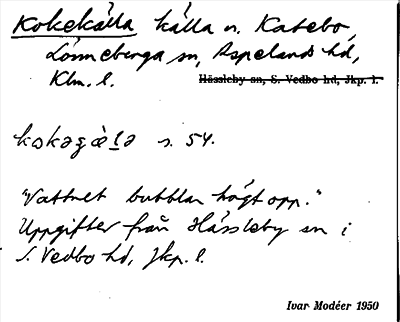 Kokekälla källa n. Katebo,
Lönneberga sn, Aspelands hd,
Klm. l. Hässleby sn, S. Vedbo hd, Jkp. l.
kokəgæ̀lə s. 54.
"Vattnet bubblar högt opp."
Uppgifter från Hässleby sn i
S. Vedbo hd, Jkp. l.
Ivar Modéer 1950